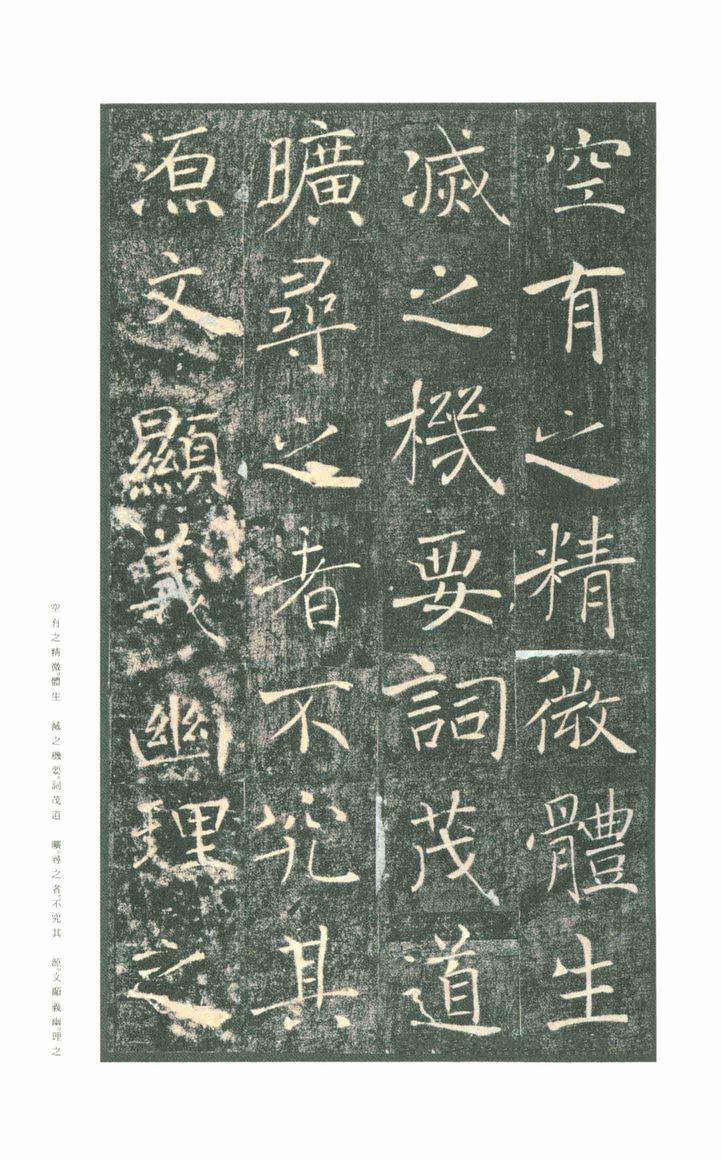 空有之精微體生
滅之機要詞茂道
曠尋之者不究其
源文顯義幽理之
空有之精微。體生　滅之機要。詞茂道　曠。尋之者。不究其　源。文顯義幽。理之